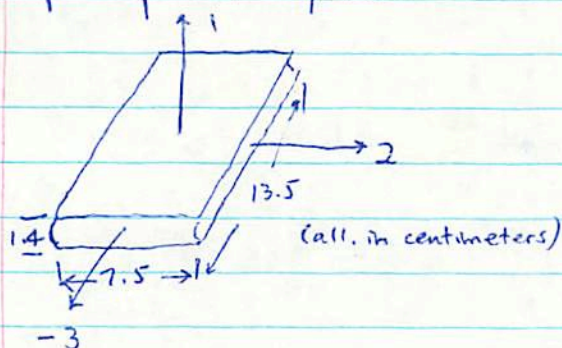 1
2
13.5
1.4
(all in centimeters)
7.5
-3